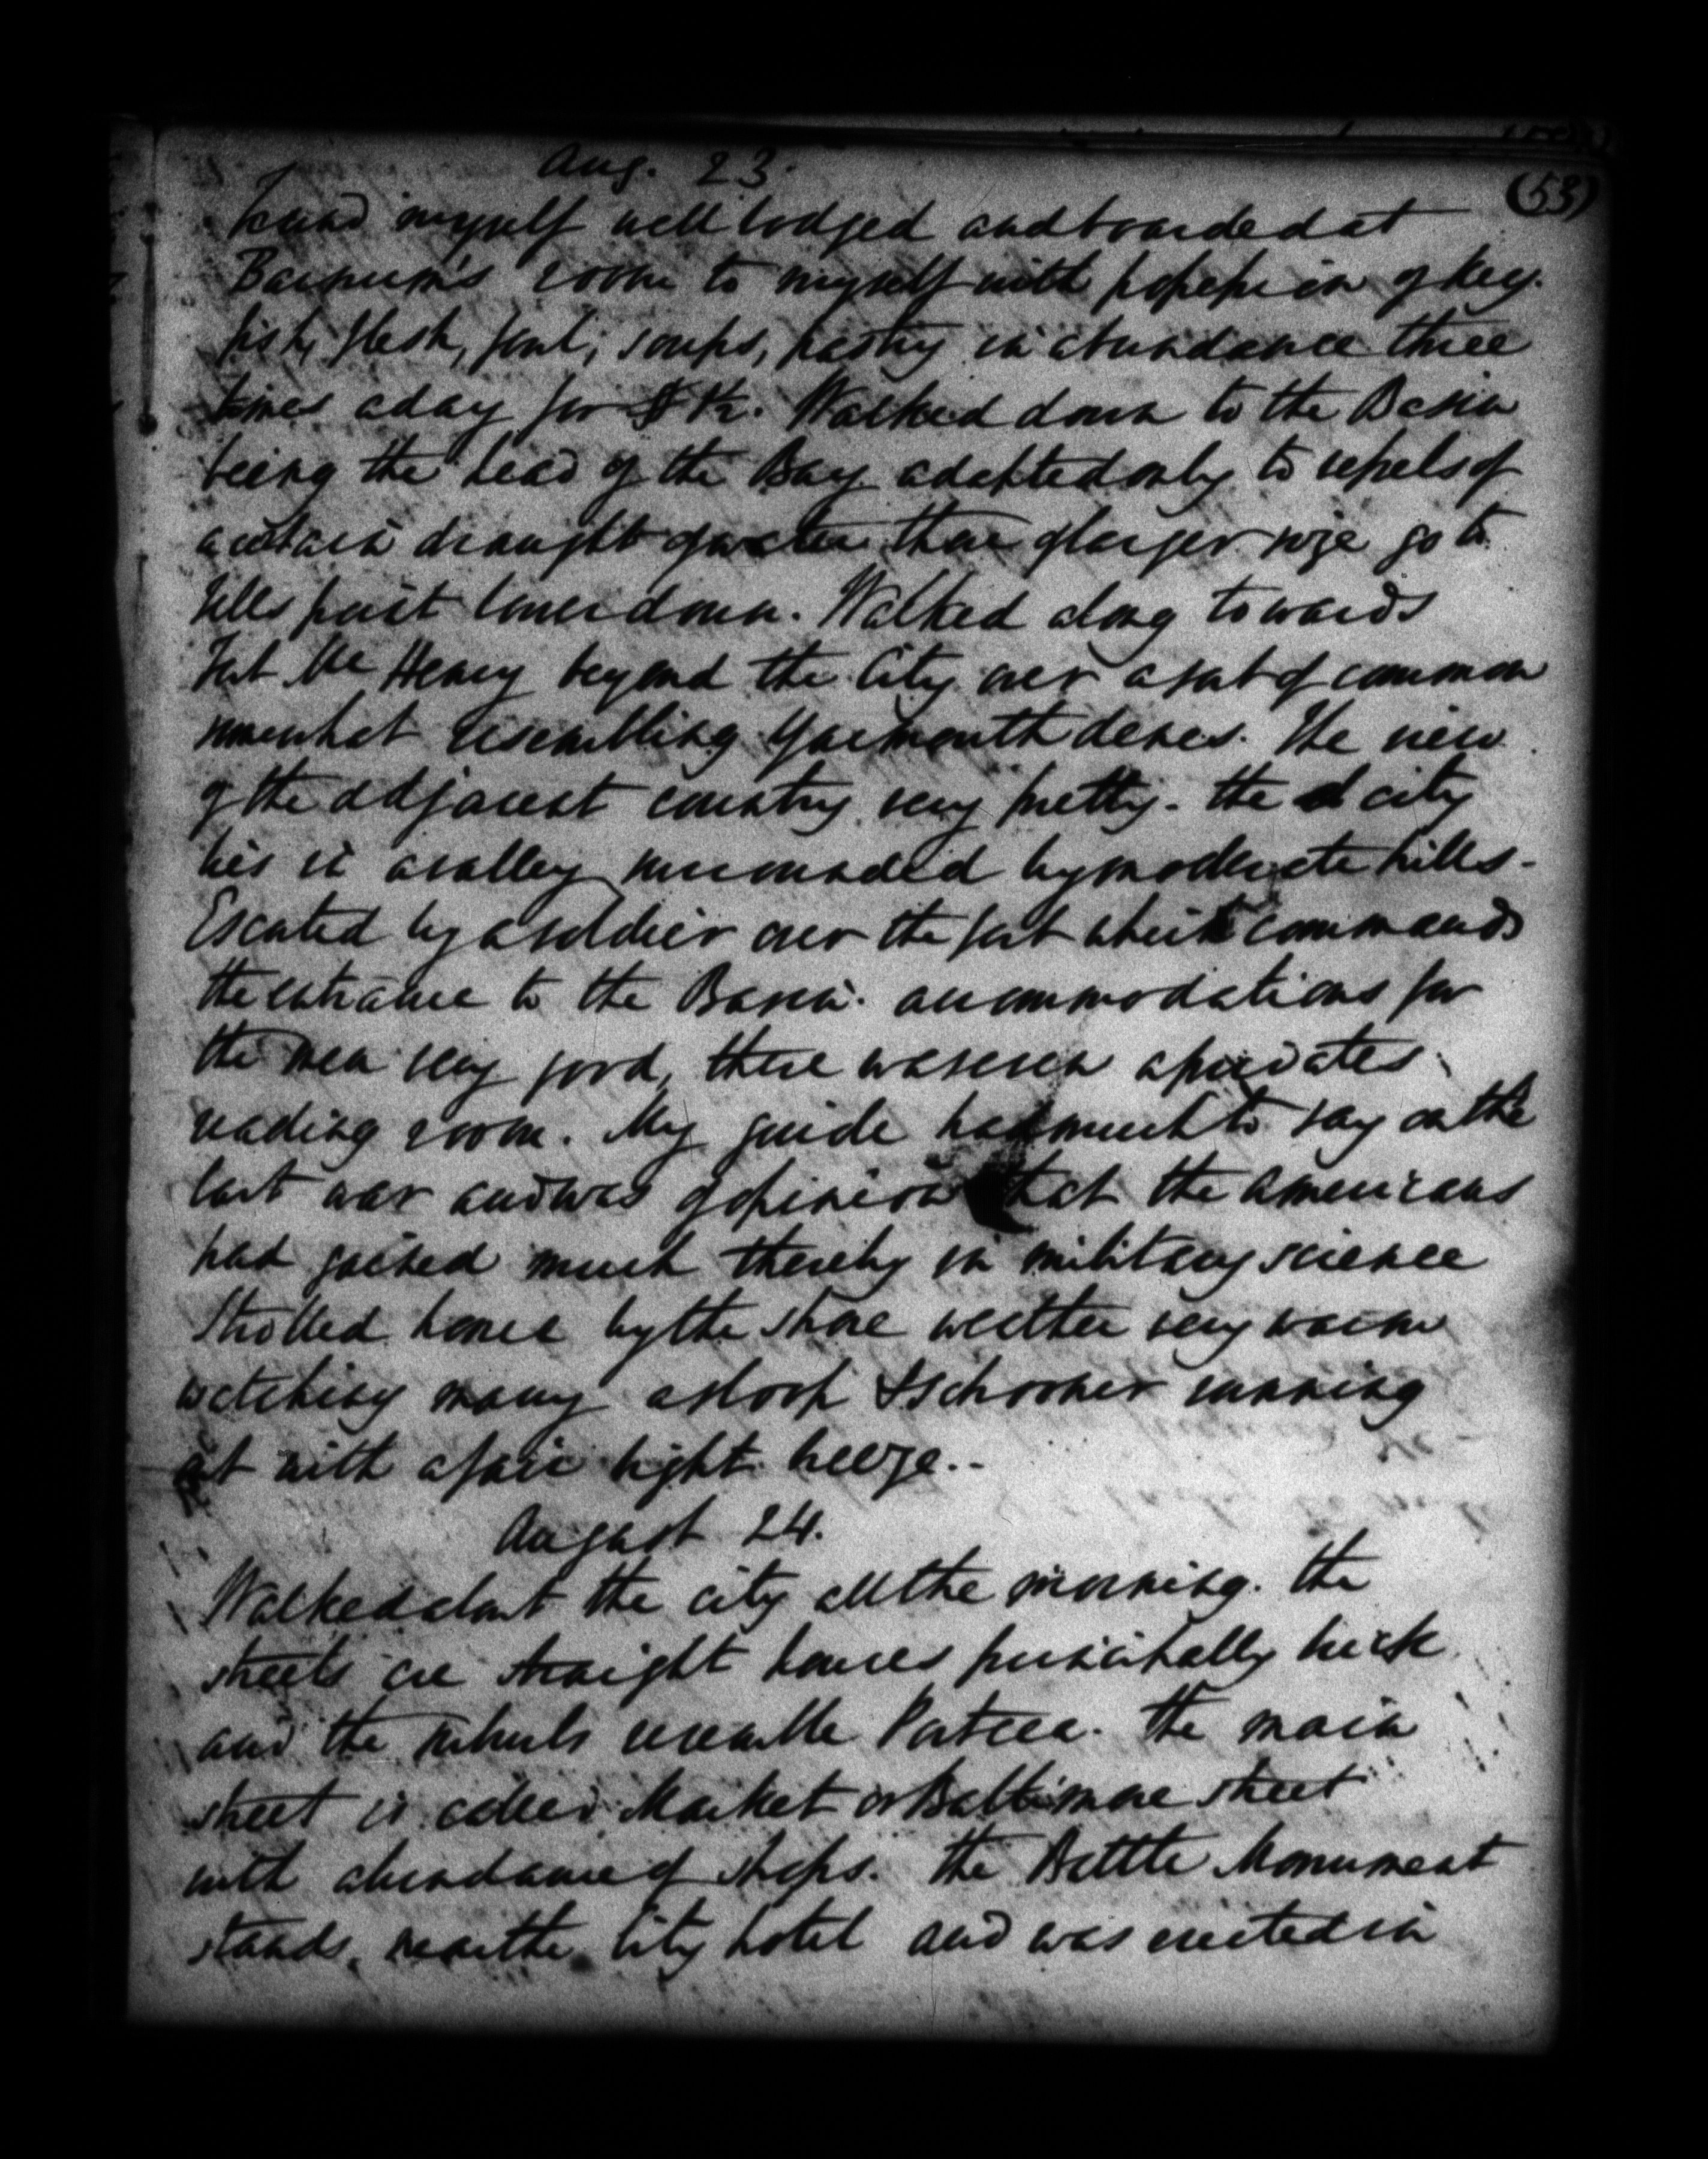 Aug. 23.
(53)
Found myself well lodged and boarded at
Barnum's room to myself with possession of key.
fish, flesh, fowl, soups, pastry in abundance three
times a day for $ 1½. Walked down to the Basin
being the head of the Bay adapted only to vessels of
a certain draught of water those of larger size go to
Fells point lower down. Walked along towards
Fort Mc Henry beyond the City over a sort of common
somewhat resembling Yarmouth denes. The view
of the adjacent country very pretty - the city
lies in a valley surrounded by moderate hills -
Escorted by a soldier over the fort which commands
the entrance to the Basin. accommodations for
the men very good, there was even a privates
reading room. My guide had much to say on the
last war and was of opinion that the Americans
had gained much thereby in military science
Strolled home by the shore weather very warm
watching many a sloop & schooner running
out with a fair light breeze. -
August 24.
Walked about the city all the morning. The
streets are straight houses principally brick
and the suburbs resemble Portsea. The main
street is called Market or Baltimore street
with abundance of shops. The Battle Monument
stands near the City hotel and was erected in